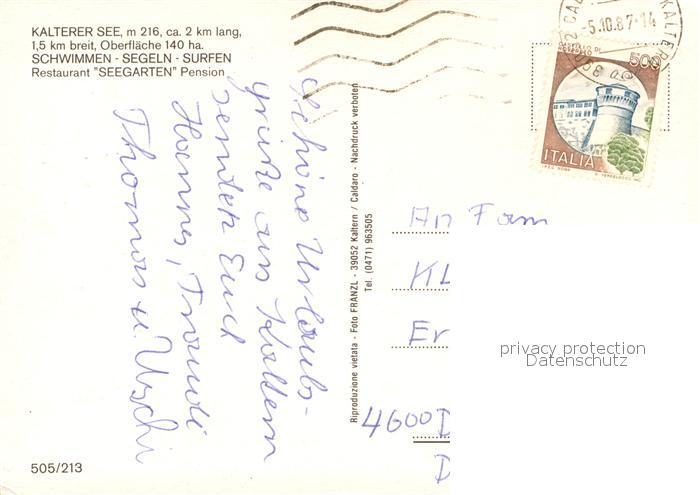 KALTERER SEE, m 216, ca. 2 km lang,
1,5 km breit, Oberfläche 140 ha.
SCHWIMMEN - SEGELN - SURFEN
Restaurant "SEEGARTEN" Pension
Schöne Urlaubs-
grüße aus Kaltern
sendet Euch
Hannes, Traudi
Thomas u. Uschi
Riproduzione vietata - Foto FRANZL - 39052 Kaltern / Caldaro - Nachdruck verboten
Tel. (0471) 963505
-5.10.87-14
500
ITALIA
An Fam
KL
Er
4600 D
D
privacy protection
Datenschutz
505/213